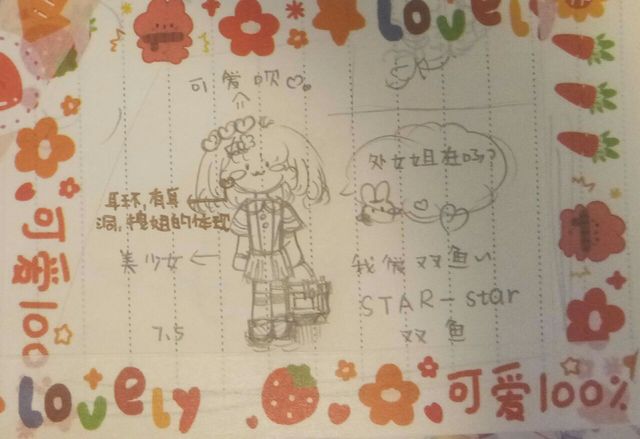 Lovely
可爱呗
处女姐在吗?
耳环,有耳
洞,
美少女
我微双鱼
STAR-star
双鱼
7.5
可爱100
Lovely
可爱100%